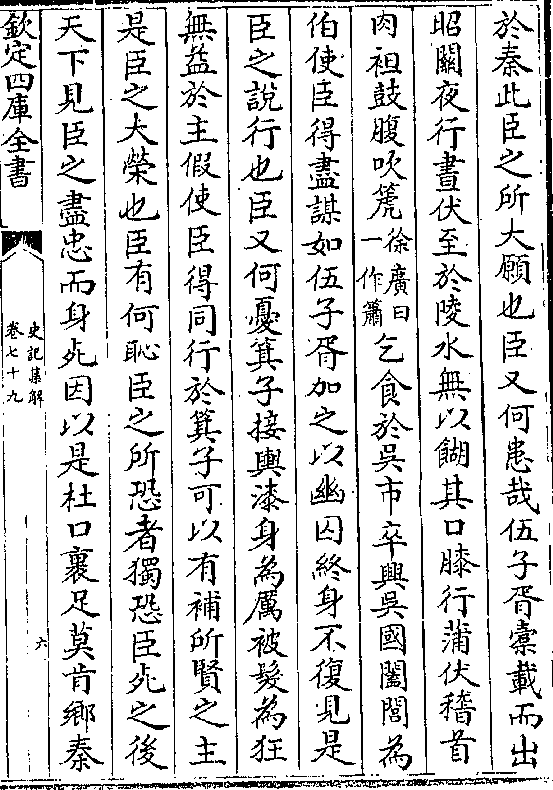 於秦此臣之所大願也臣又何患哉伍子胥橐載而出
昭關夜行晝伏至於陵水無以餬其口膝行蒲伏稽首
肉袒鼓腹吹篪徐廣曰一作簫乞食於吳市卒興吳國闔閭為
伯使臣得盡謀如伍子胥加之以幽囚終身不復見是
臣之說行也臣又何憂箕子接輿漆身為厲被髮為狂
無益於主假使臣得同行於箕子可以有補所賢之主
是臣之大榮也臣有何恥臣之所恐者獨恐臣死之後
天下見臣之盡忠而身死因以是杜口裹足莫肯鄉秦
欽定四庫全書
史記集解
卷七十九
六